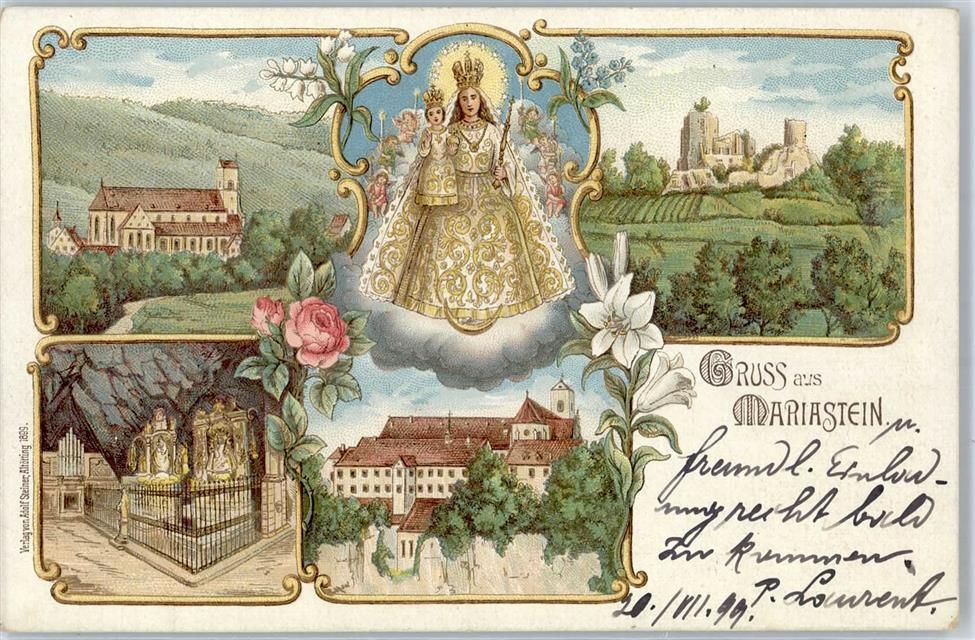 GRUSS aus
MARIASTEIN.
u.
freundl. Einlad-
ung recht bald
zu kommen.
P. Laurent.
20./VII.99.
Verlag von Adolf Steiner, Altötting 1899.